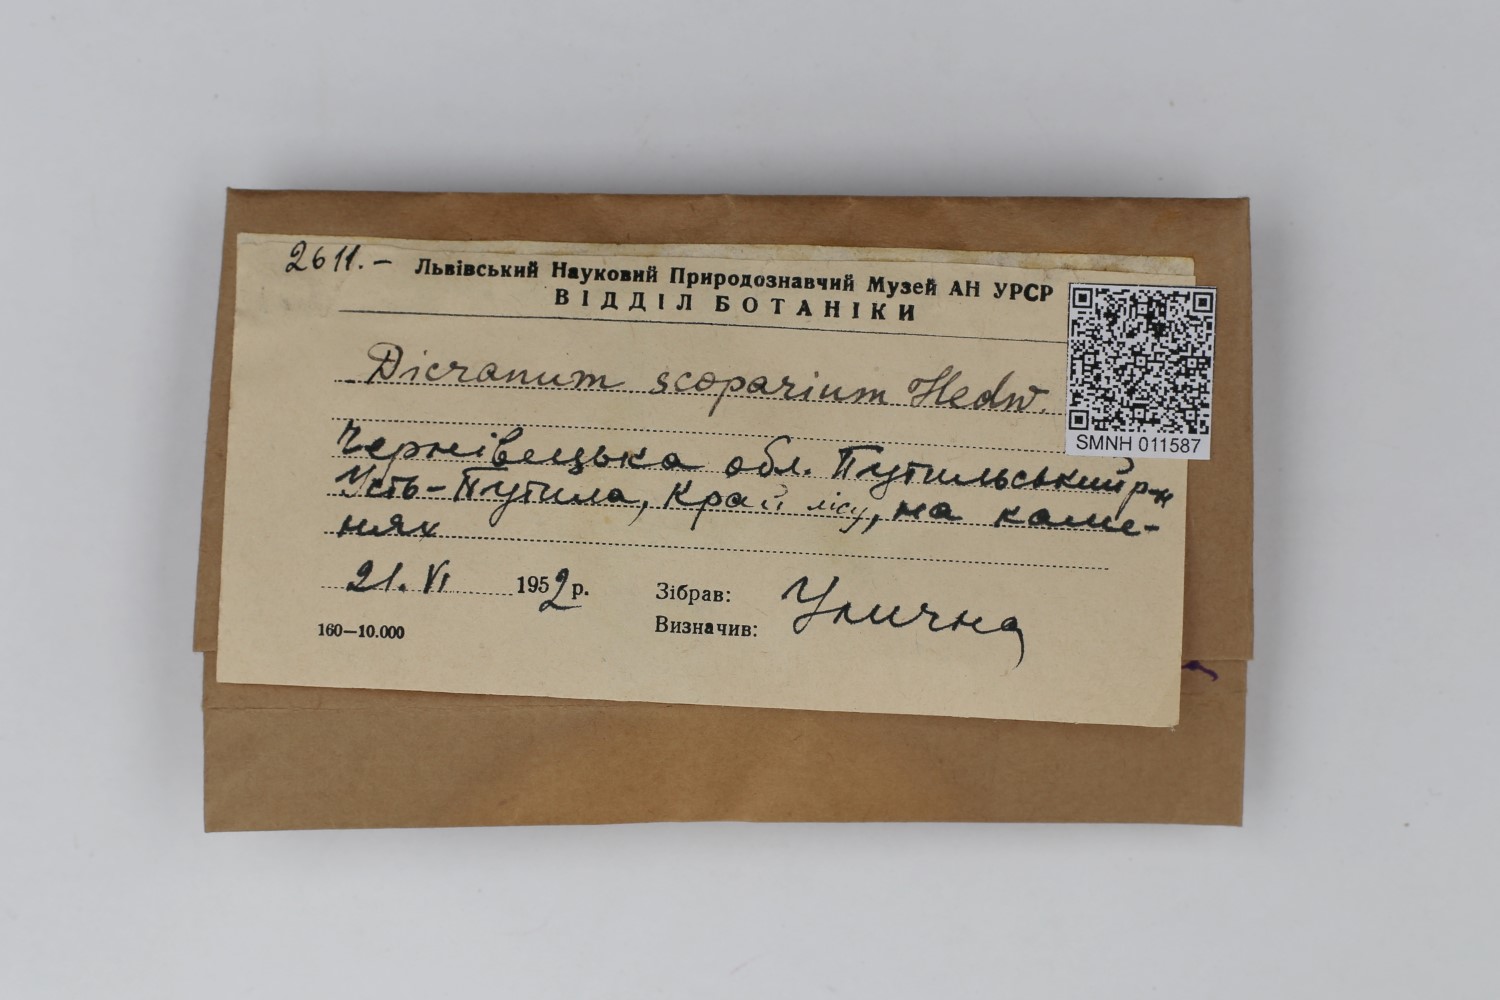 2611.- Львівський Науковий Природознавчий Музей АН УРСР
ВІДДІЛ БОТАНІКИ
Dicranum scoparium Hedw.
SMNH 011587
Чернівецька обл. Путильський р-н
Усть-Путила, край лісу, на каме-
нях
21. VI 1952 р. Зібрав: Улична
Визначив:
160—10.000